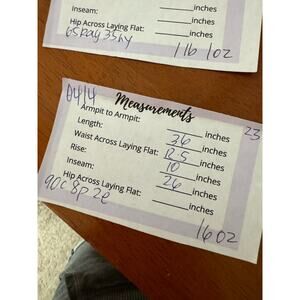 Inseam: ______ inches
Hip Across Laying Flat: ______ inches
65pay35hy
1 lb 1oz
D414
Measurements
23
Armpit to Armpit: ______ inches
Length: 36 inches
Waist Across Laying Flat: inches
Rise: 10 inches
Inseam: 26 inches
Hip Across Laying Flat: ______ inches
90c 8p 2e
16oz